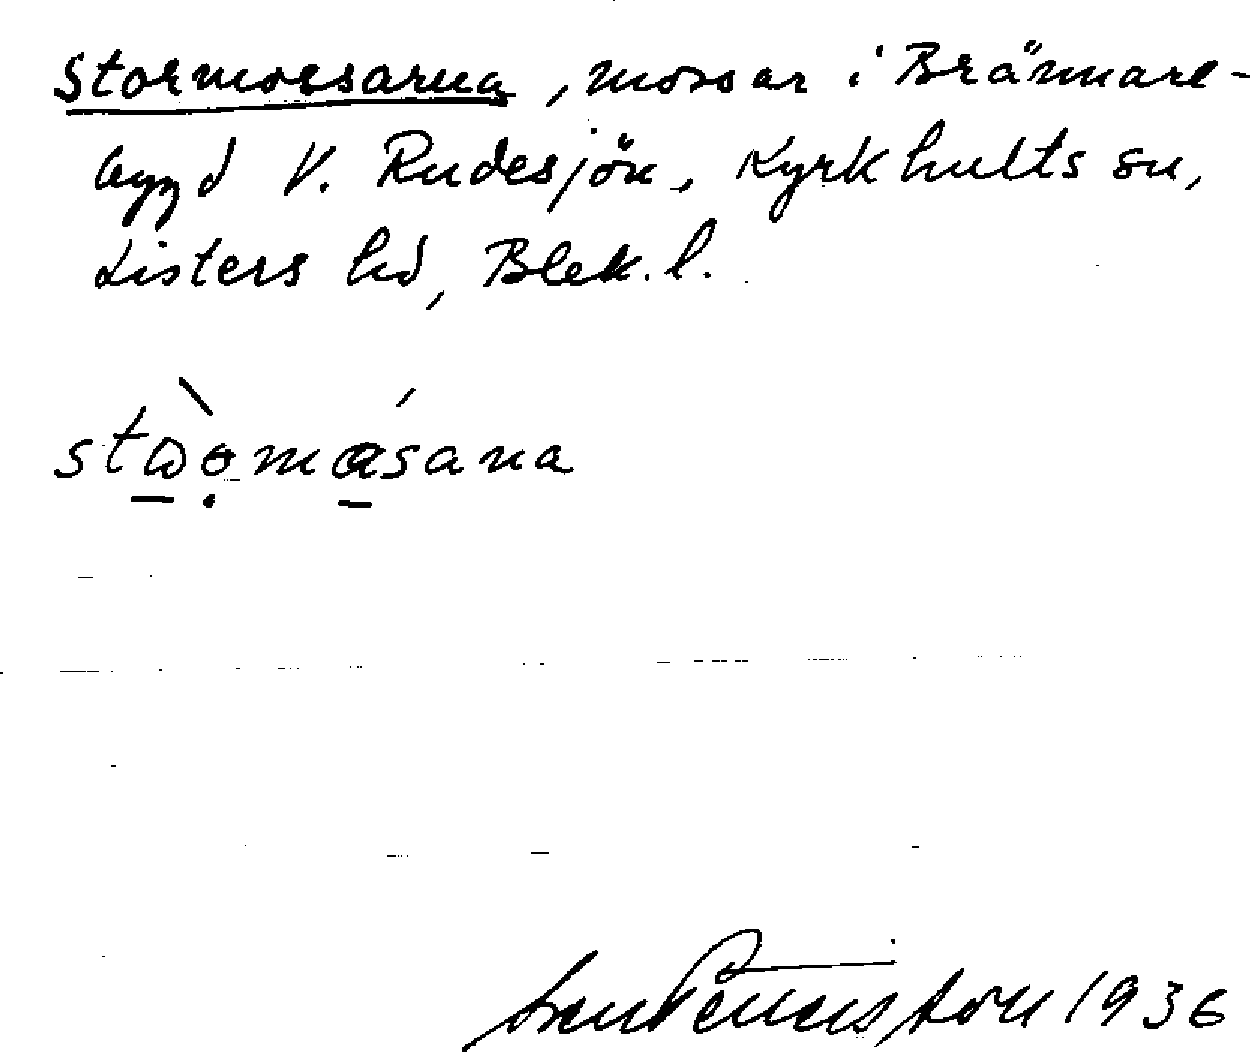 Stormossarna, mossar i Brännare-
bygd V. Rudesjön, Kyrkhults sn,
Listers hd, Blek. l.
1936